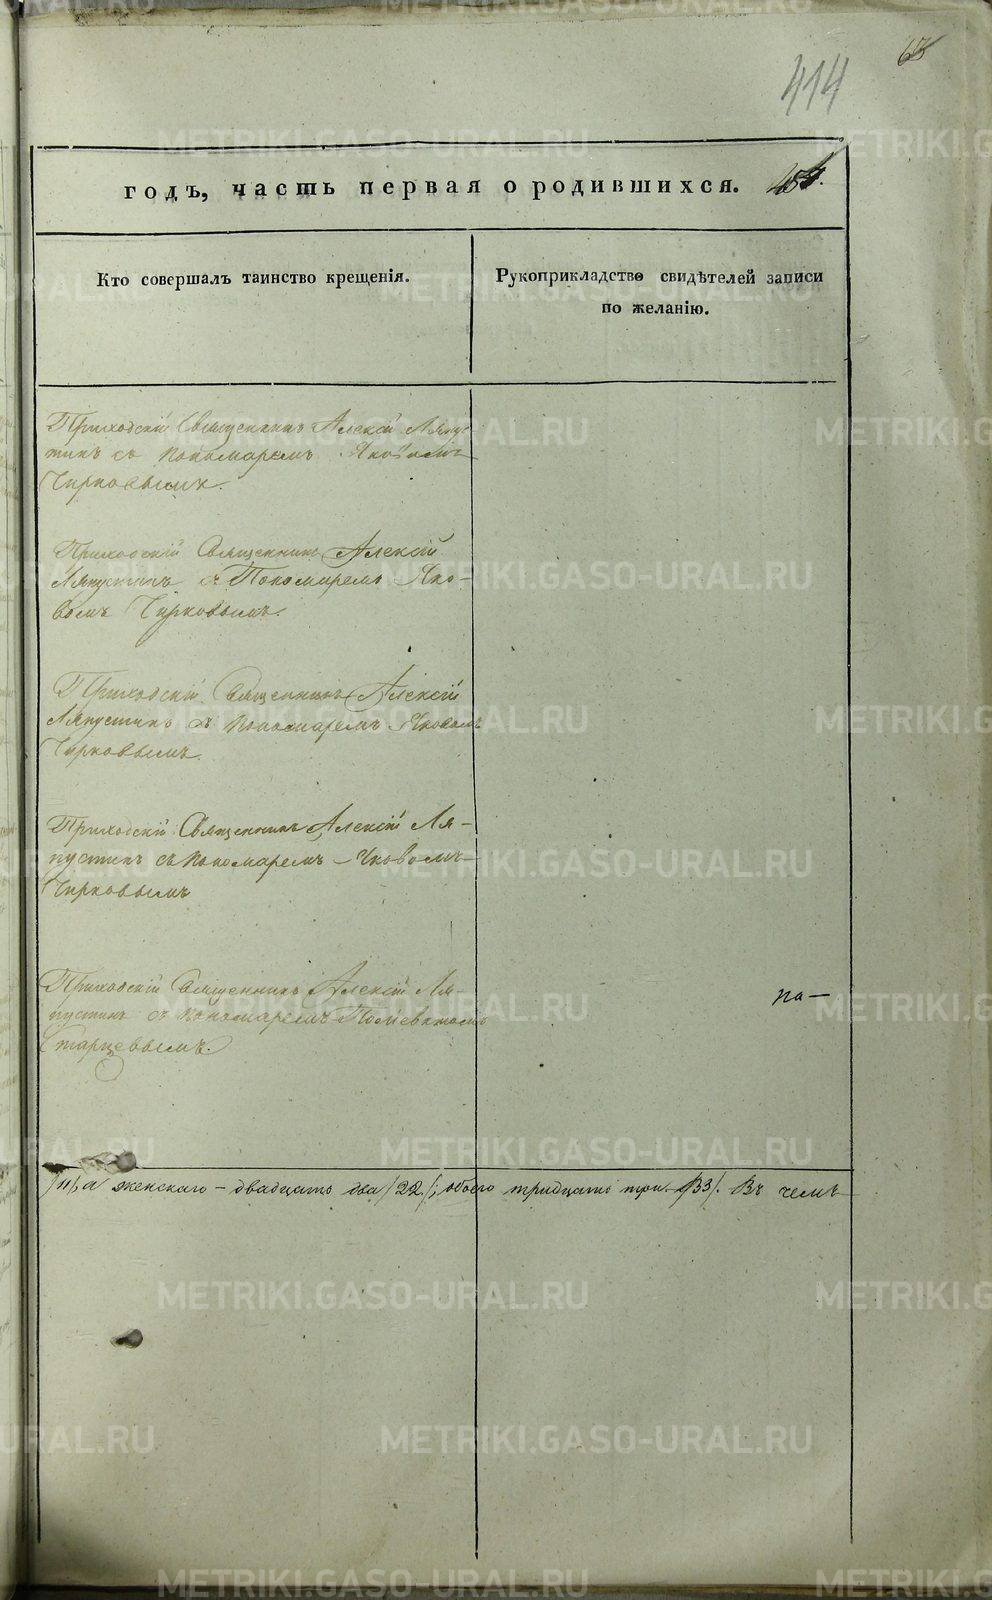 414
годъ, часть первая о родившихся.
Кто совершалъ таинство крещенія.
Рукоприкладство свидѣтелей записи
по желанію.
Приходскій Священникъ Алексій Ляпус-
тинъ съ пономаремъ Яковомъ
Чирковымъ.
Приходскій Священникъ Алексій
Ляпустинъ съ Пономаремъ Яко-
вомъ Чирковымъ.
Приходскій Священникъ Алексій
Ляпустинъ съ пономаремъ Яковомъ
Чирковымъ.
Приходскій Священникъ Алексій Ля-
пустинъ съ пономаремъ Яковомъ
Чирковымъ
Приходскій Священникъ Алексій Ля-
пустинъ съ пономаремъ
Старцевымъ.
по—
/11/, а женскаго – двадцать два /22/; обоего тридцать три /33/. Въ чемъ
METRIKI.GASO-URAL.RU